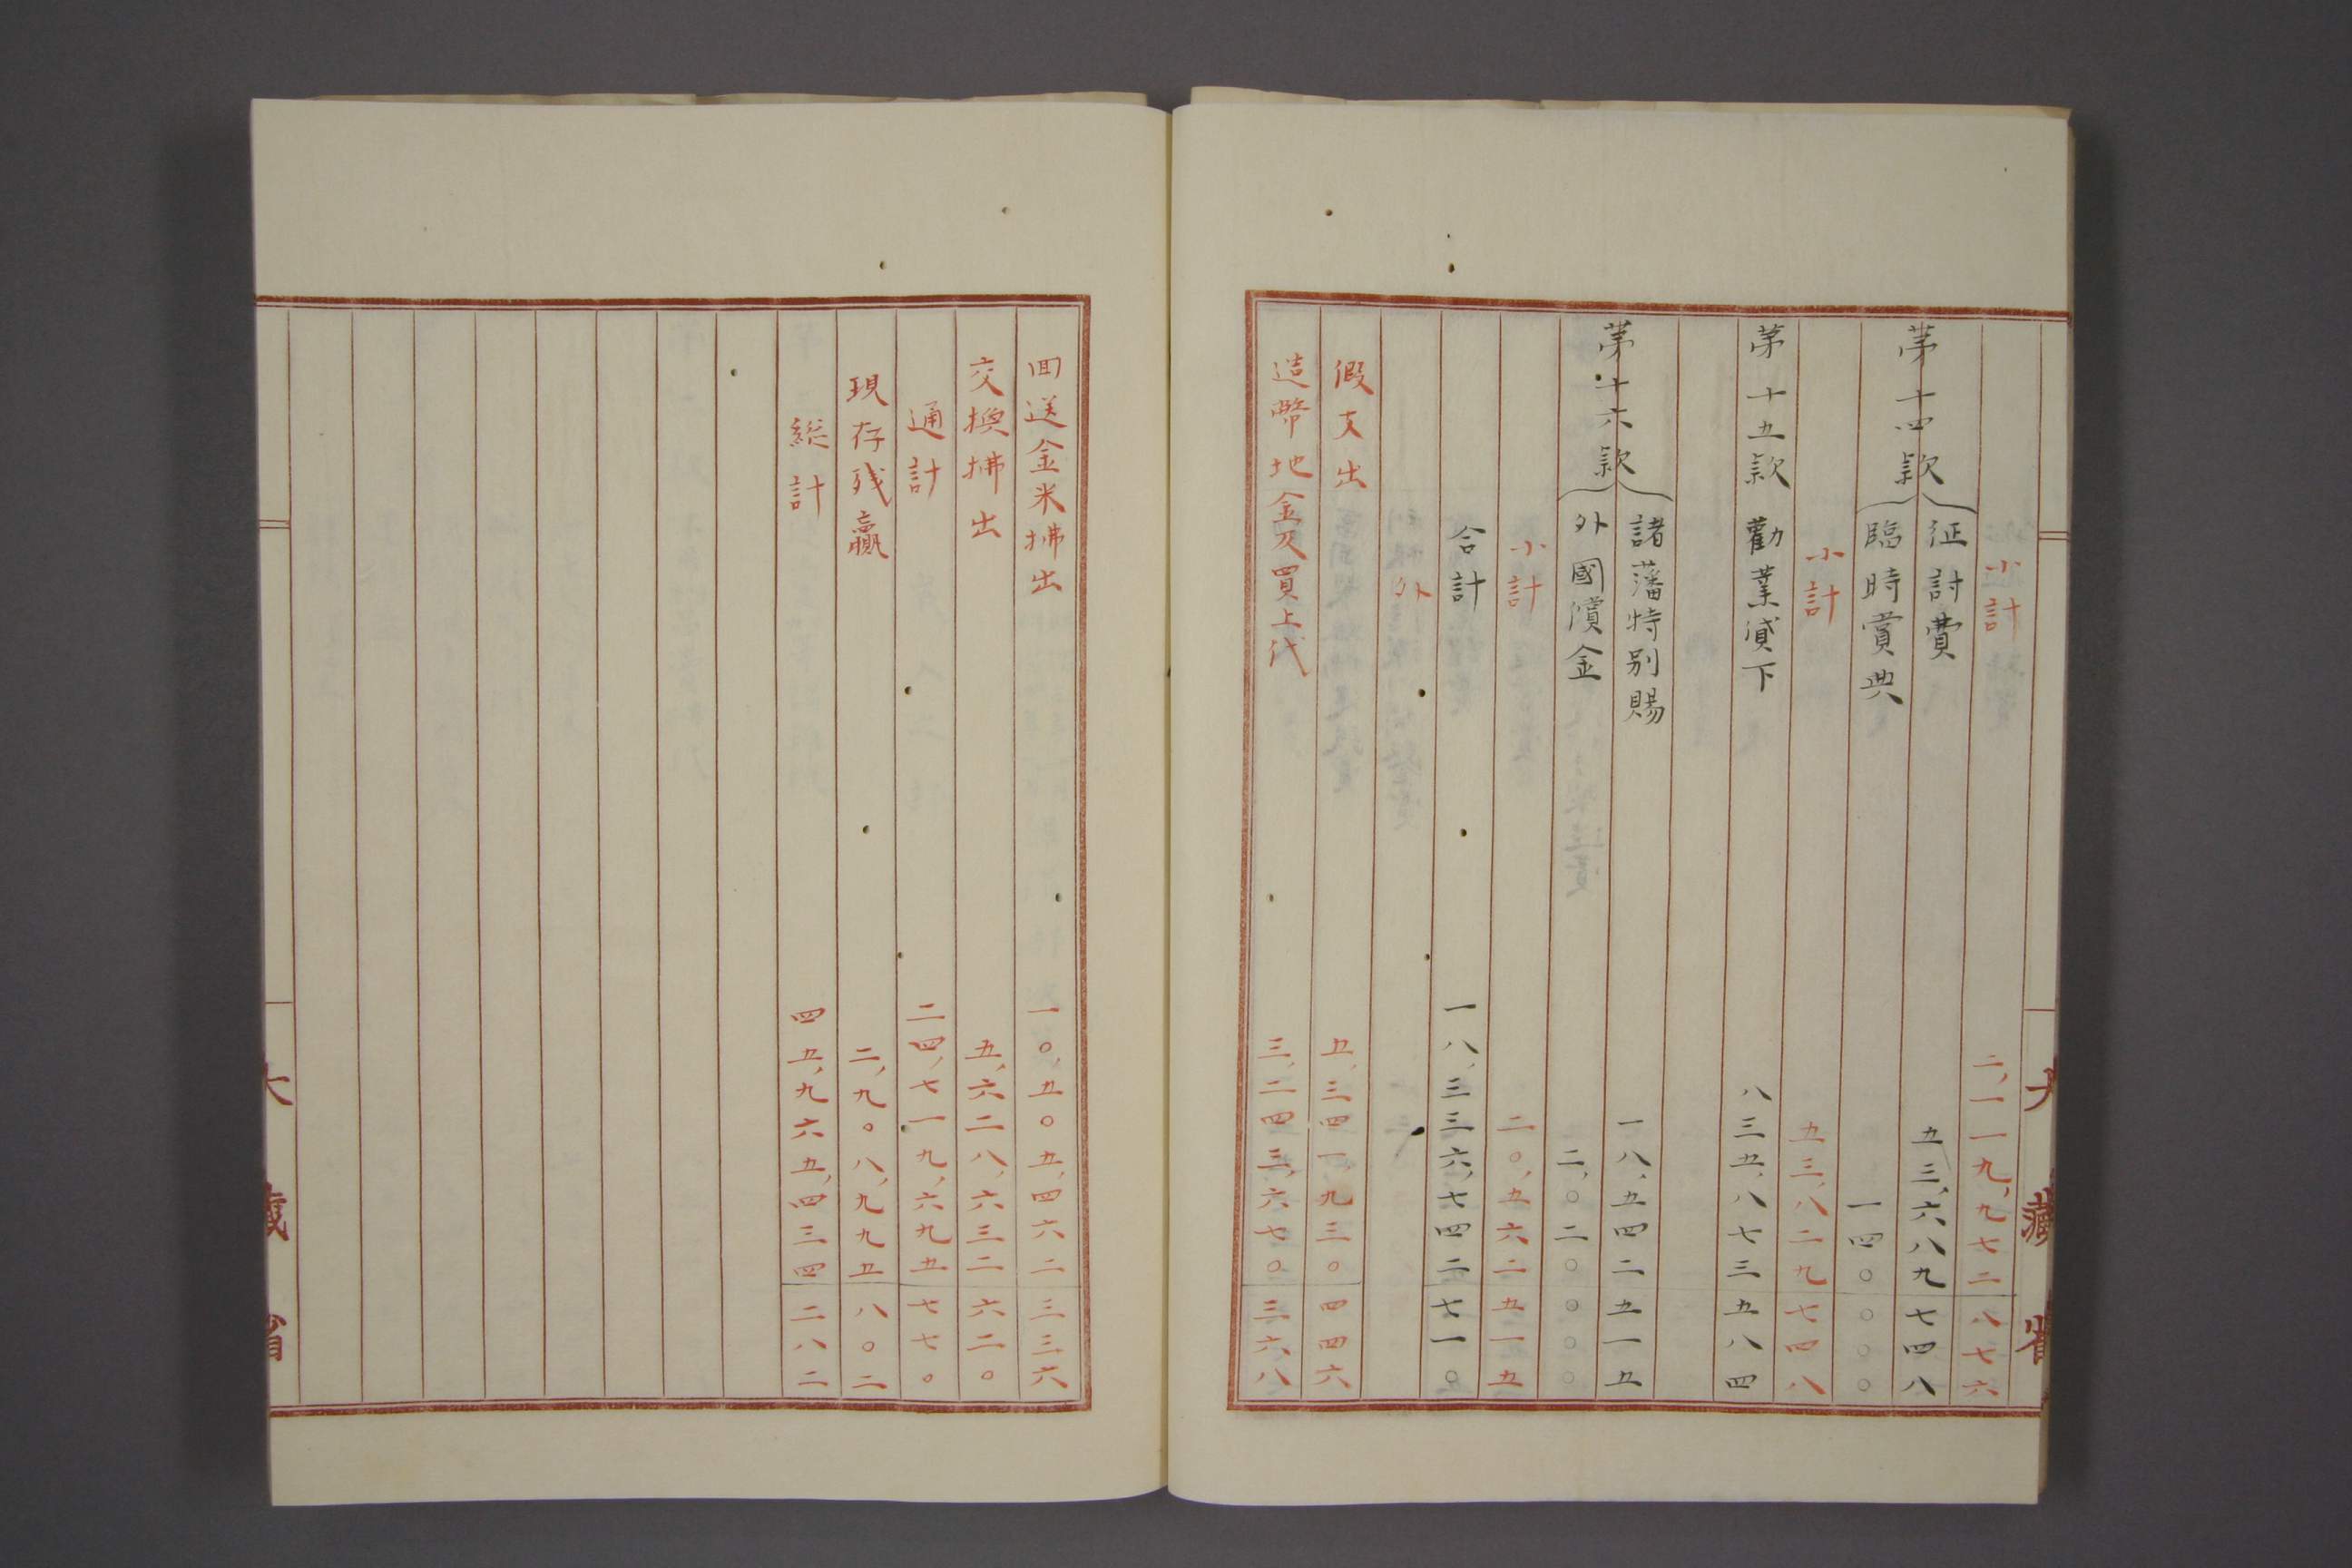 大藏省
小計 二,一一九,九七二八七六
第十四款
征討費 五三,六八九七四八
臨時賞典 一四〇〇〇〇
小計 五三,八二九七四八
第十五款 勸業貸下 八三五,八七三五八四
第十六款
諸藩特別賜 一八,五四二五一五
外國償金 二,〇二〇〇〇〇
小計 二〇,五六二五一五
合計 一八,三三六,七四二七一〇
外
假支出 五,三四一,九三〇四四六
造幣地金及買上代 三,二四三,六七〇三六八
回送金米拂出 一〇,五〇五,四六二三三六
交換拂出 五,六二八,六三二六二〇
通計 二四,七一九,六九五七七〇
現存残贏 二,九〇八,九九五八〇二
総計 四五,九六五,四三四二八二
大藏省